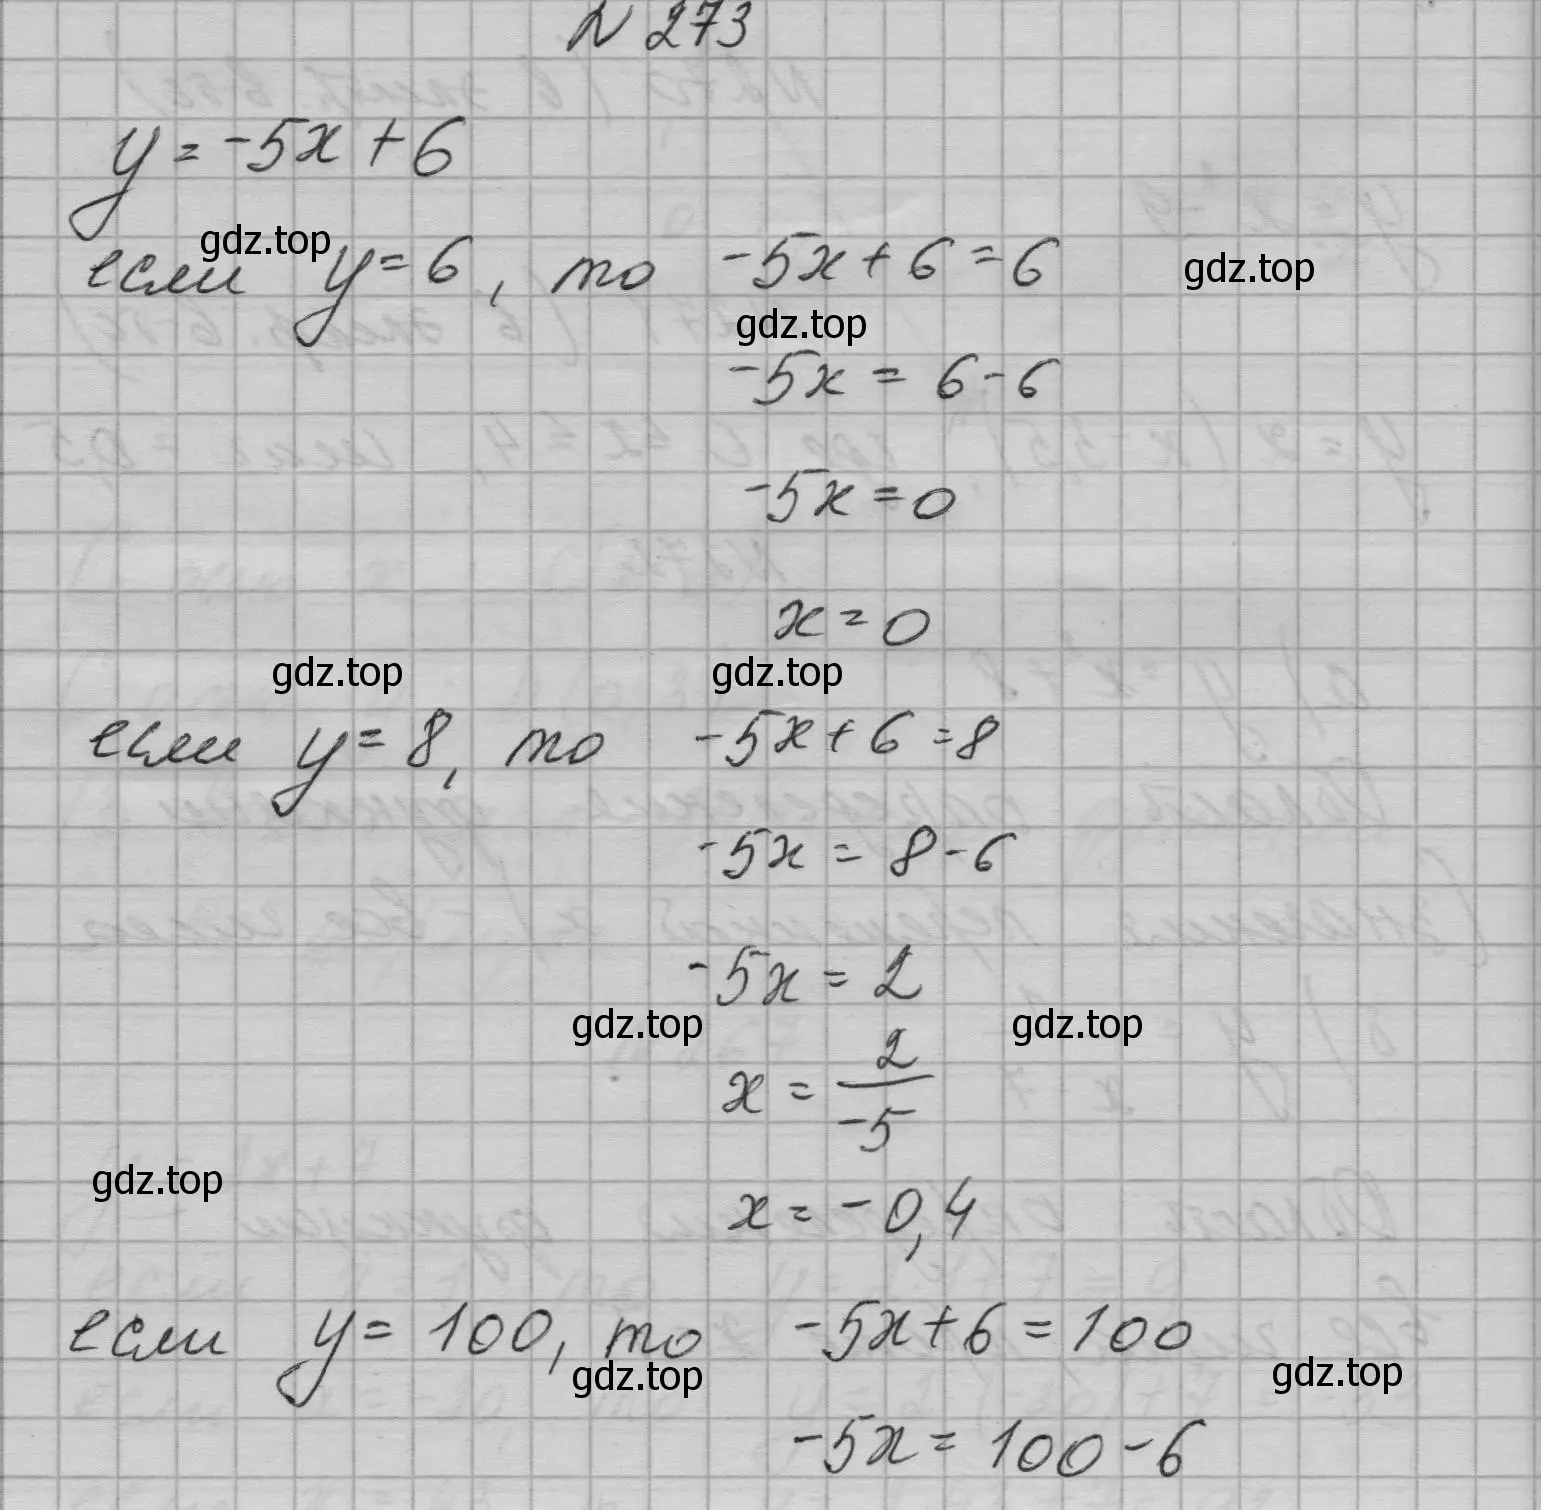 N 273
y = -5x + 6
gdz.top
если y = 6, то -5x + 6 = 6
gdz.top
gdz.top
-5x = 6 - 6
-5x = 0
x = 0
gdz.top gdz.top
если y = 8, то -5x + 6 = 8
-5x = 8 - 6
-5x = 2
gdz.top gdz.top
x = 2/-5
gdz.top
x = -0,4
если y = 100, то -5x + 6 = 100
gdz.top gdz.top
-5x = 100 - 6